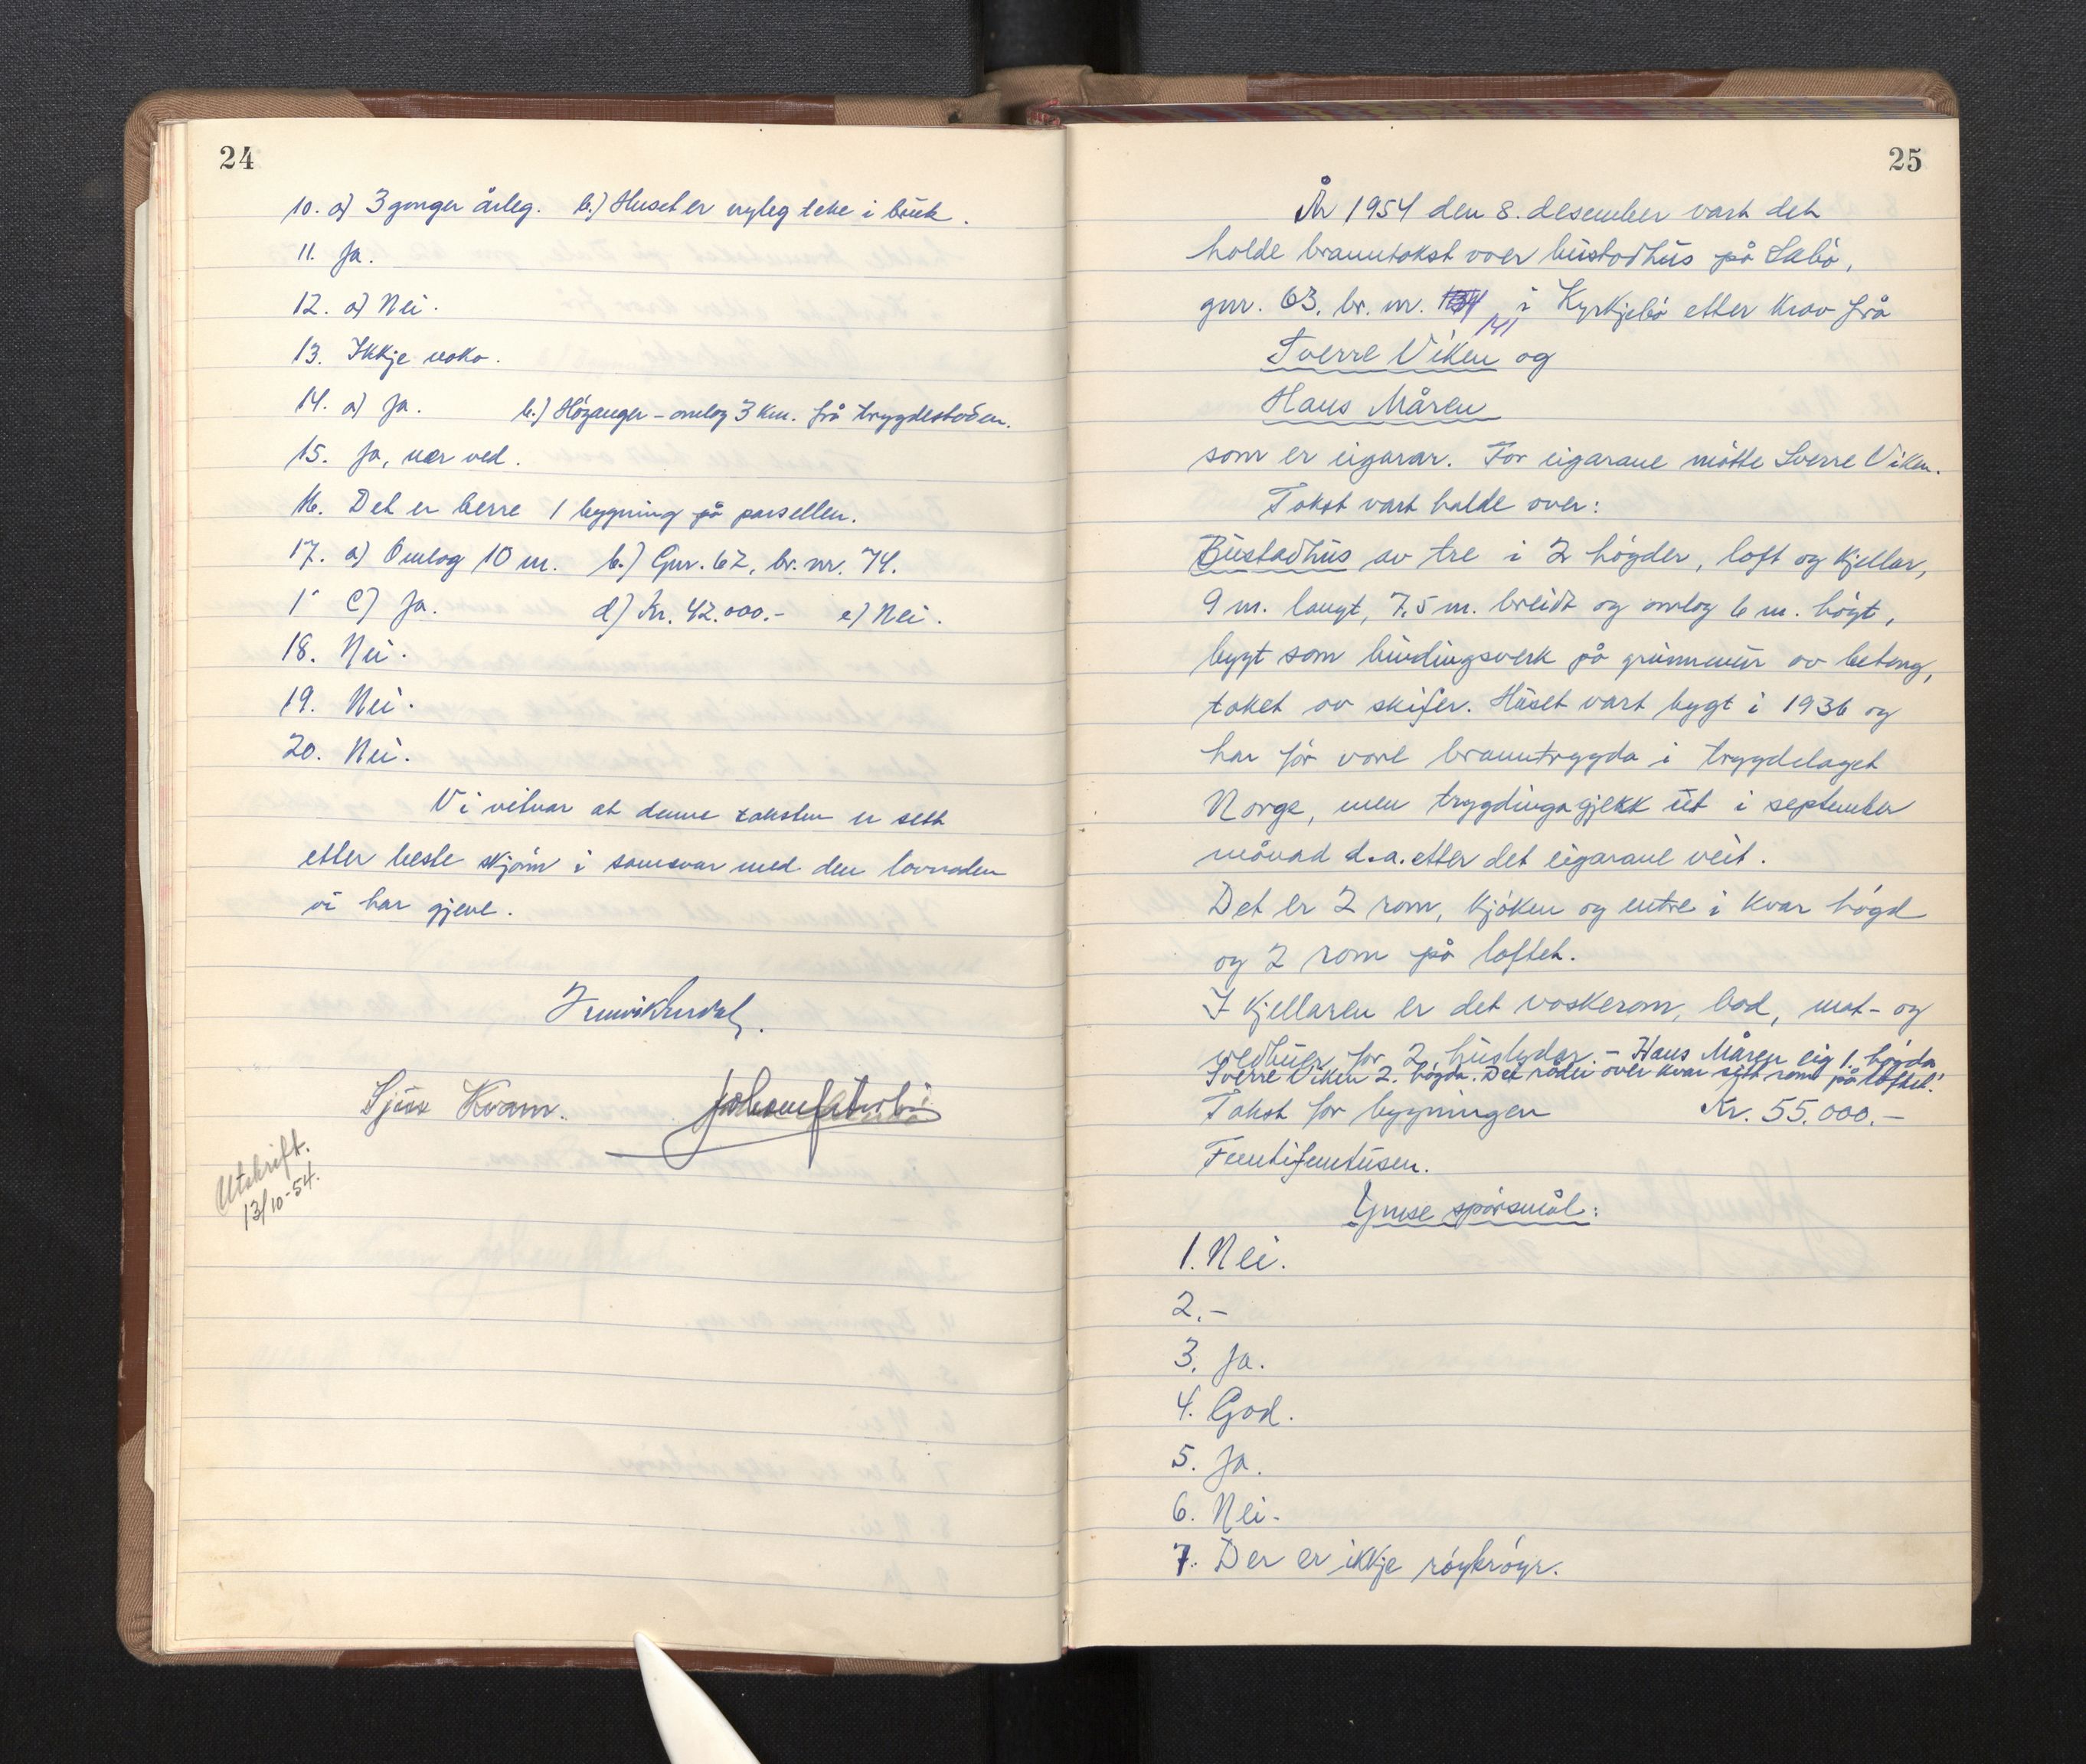 24
10. a) 3 gonger årleg. b.) Huset er nyleg teke i bruk.
11. Ja.
12. a) Nei.
13. Ikkje noko.
14. a) Ja. b.) Høyanger – omlag 3 km. frå trygdestaden.
15. Ja, nær ved.
16. Det er berre 1 bygning på parsellen.
17. a) Omlag 10 m. b.) Gnr. 62, br. nr. 74.
1" c) Ja. d) Kr. 42.000.- e) Nei.
18. Nei.
19. Nei.
20. Nei.
Vi vitnar at denne taksten er sett
etter beste skjøn i samsvar med den lovnaden
vi har gjeve.
Sjur Kvam.
Utskrift.
13/10-54.
25
År 1954 den 8. desember vart det
halde branntakst over bustadhus på Sæbø,
gnr. 63. br. nr. 141 i Kyrkjebø etter krav frå
Sverre Viken og
Hans Måren
som er eigarar. For eigarane møtte Sverre Viken.
Takst vart halde over:
Bustadhus av tre i 2 høgder, loft og kjellar,
9 m. langt, 7.5 m. breidt og omlag 6 m. høgt,
bygt som bindingsverk på grunnmur av betong,
taket av skifer. Huset vart bygt i 1936 og
har før vore branntrygda i trygdelaget
Norge, men trygdinga gjekk ut i september
månad d.a. etter det eigarane veit.
Det er 2 rom, kjøken og entre i kvar høgd
og 2 rom på loftet.
I kjellaren er det vaskerom, bad, mat- og
vedbuer for 2 huslydar. – Hans Måren eig 1. høgda
Sverre Viken 2. høgda. Dei råder over kvar sitt rom på loftet.
Takst for bygningen Kr. 55.000.–
Femtifemtusen.
Ymse spørsmål:
1. Nei.
2. –
3. Ja.
4. God.
5. Ja.
6. Nei.
7. Der er ikkje røykrøyr.